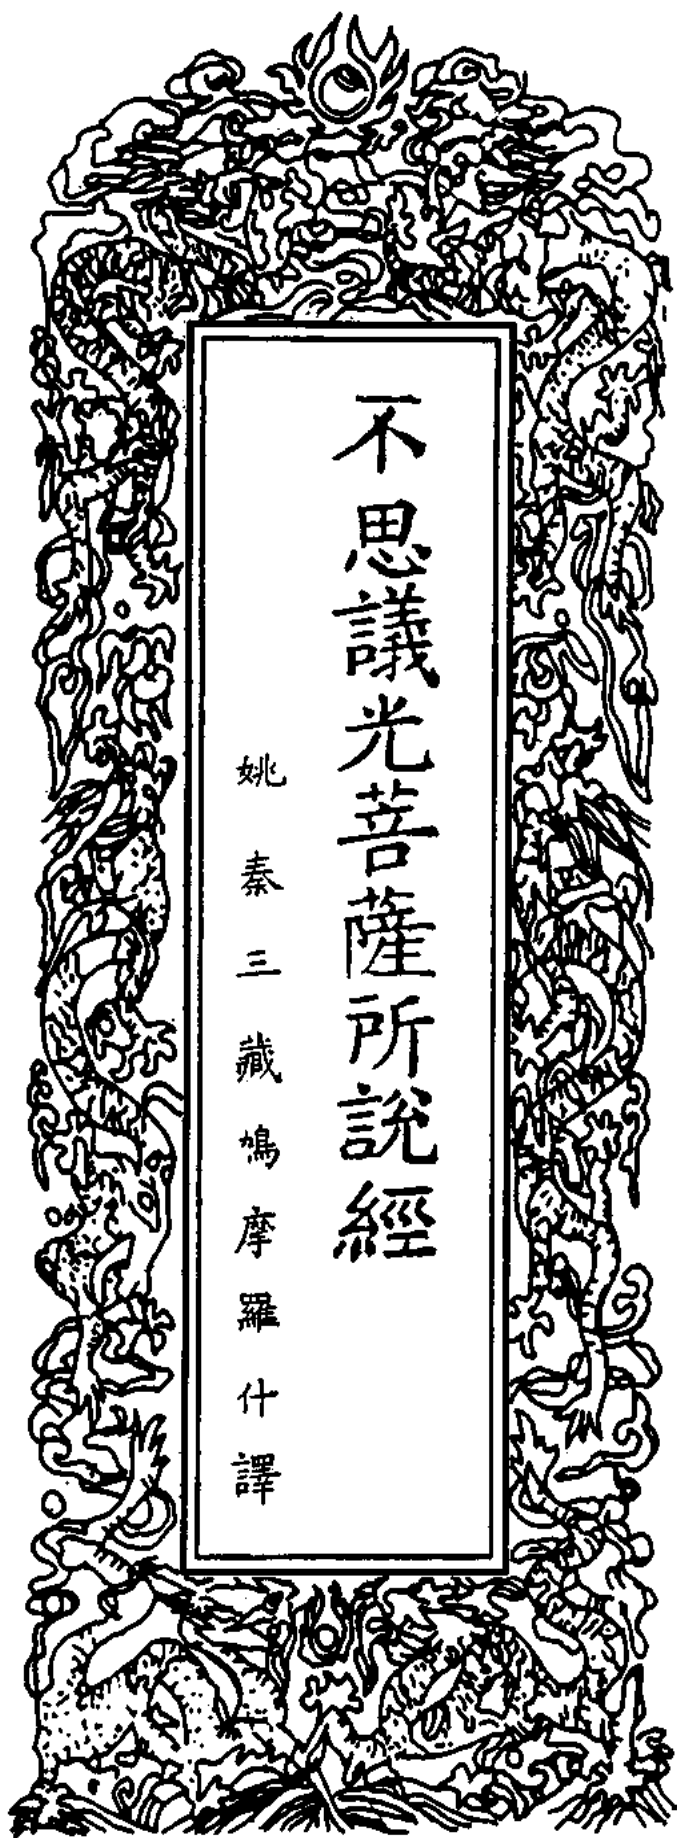 不思議光菩薩所說經
姚秦三藏鳩摩羅什譯